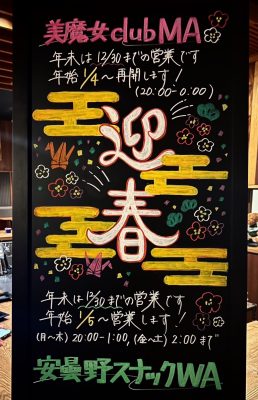 美魔女clubMA
年末は12/30までの営業です
年始1/4～再開します!
(20:00-0:00)
迎春
年末は12/30までの営業です
年始1/5～営業します!
(月～木)20:00-1:00,(金～土)2:00まで
安曇野スナックWA